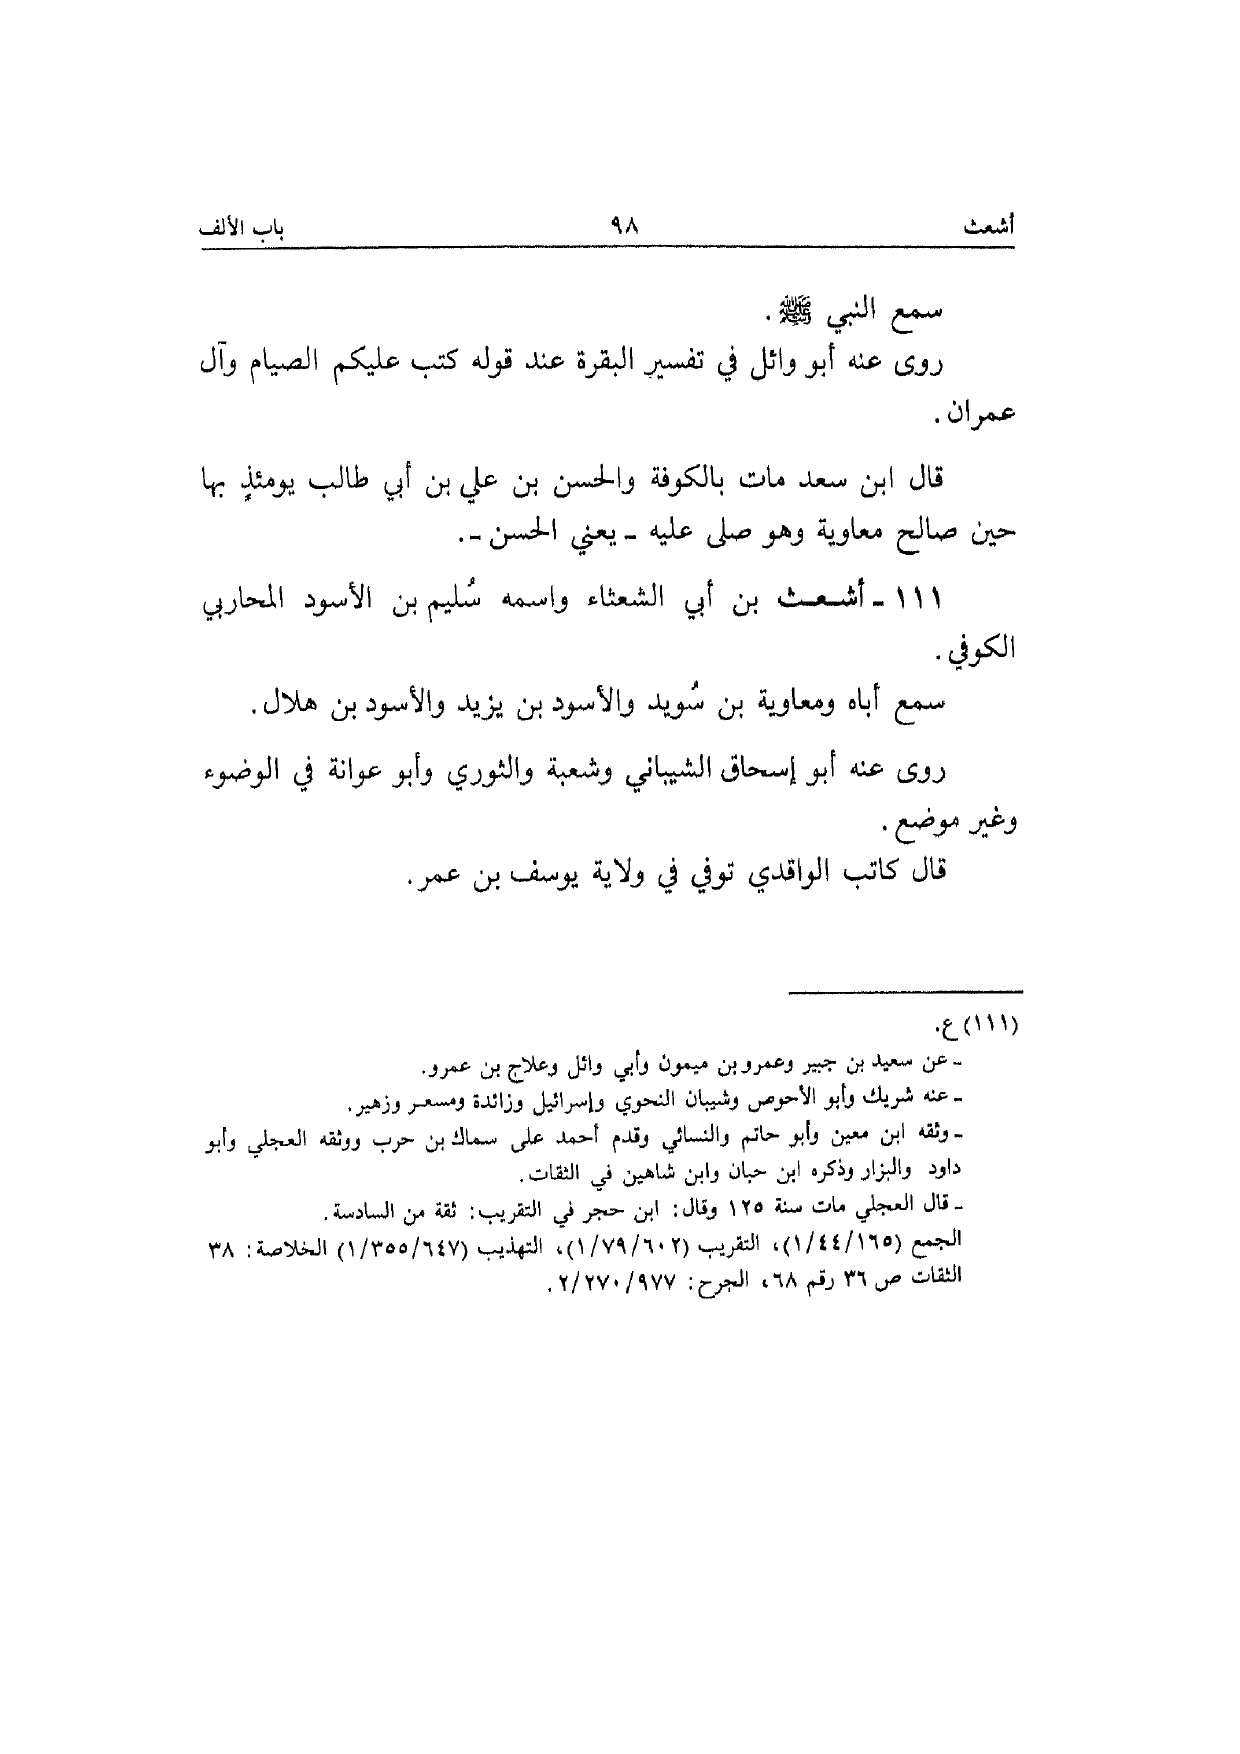 أشعث ٩٨ باب الألف
سمع النبي ﷺ .
روى عنه أبو وائل في تفسير البقرة عند قوله كتب عليكم الصيام وآل
عمران .
قال ابن سعد مات بالكوفة والحسن بن علي بن أبي طالب يومئذٍ بها
حين صالح معاوية وهو صلى عليه ـ يعني الحسن ـ.
١١١ ـ أشعث بن أبي الشعثاء واسمه سُليم بن الأسود المحاربي
الكوفي .
سمع أباه ومعاوية بن سُويد والأسود بن يزيد والأسود بن هلال .
روى عنه أبو إسحاق الشيباني وشعبة والثوري وأبو عوانة في الوضوء
وغير موضع .
قال كاتب الواقدي توفي في ولاية يوسف بن عمر .
(١١١) ع.
ـ عن سعيد بن جبير وعمرو بن ميمون وأبي وائل وعلاج بن عمرو.
ـ عنه شريك وأبو الأحوص وشيبان النحوي وإسرائيل وزائدة ومسعر وزهير.
ـ وثقه ابن معين وأبو حاتم والنسائي وقدم أحمد على سماك بن حرب ووثقه العجلي وأبو
داود والبزار وذكره ابن حبان وابن شاهين في الثقات.
ـ قال العجلي مات سنة ١٢٥ وقال: ابن حجر في التقريب: ثقة من السادسة.
الجمع (١/٤٤/١٦٥)، التقريب (١/٧٩/٦٠٢)، التهذيب (١/٣٥٥/٦٤٧) الخلاصة: ٣٨
الثقات ص ٣٦ رقم ٦٨، الجرح: ٢/٢٧٠/٩٧٧.